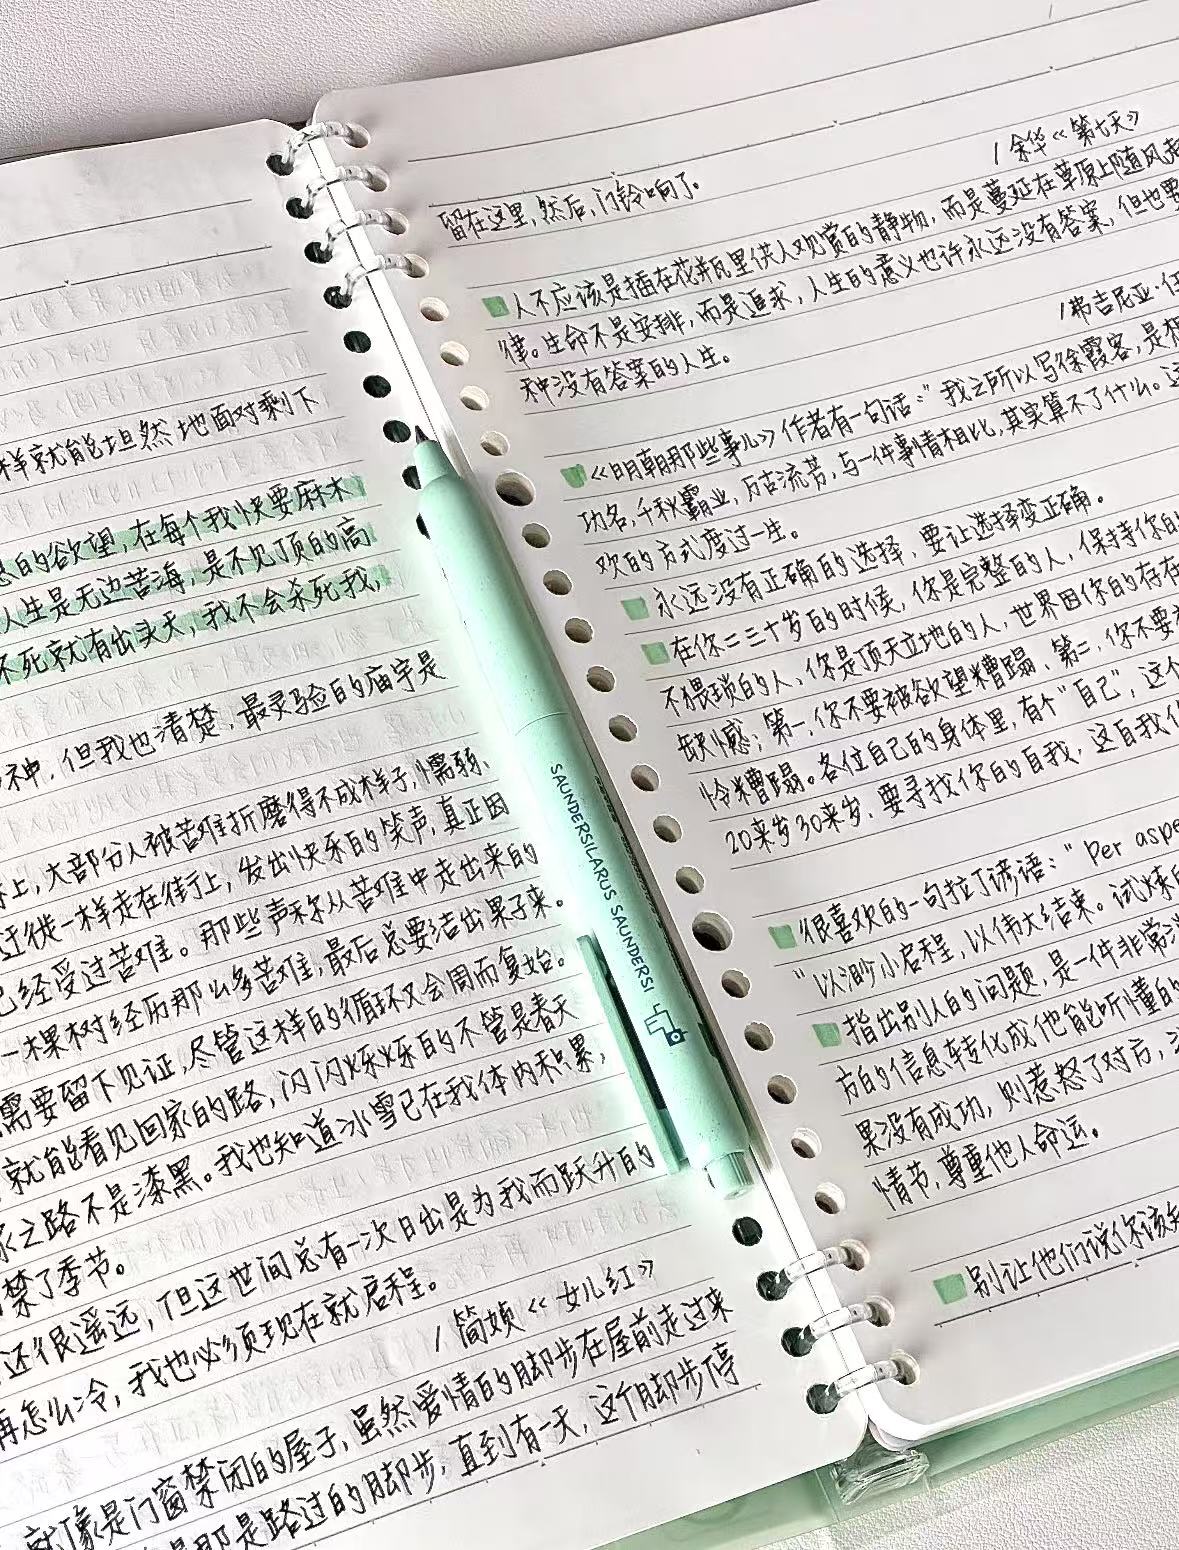 样就能坦然地面对剩下
的欲望,在每个我快要麻木
人生是无边苦海,是不见顶的高
不死就有出头天,我不会杀死我,
神,但我也清楚,最灵验的庙宇是
上,大部分人被苦难折磨得不成样子,懦弱、
迁徙一样走在街上,发出快乐的笑声,真正因
已经受过苦难。那些声称从苦难中走出来的
一棵树经历那么多苦难,最后总要结出果子来。
需要留下见证,尽管这样的循环又会周而复始。
就能看见回家的路,闪闪烁烁的不管是春天
之路不是漆黑。我也知道冰雪已在我体内积累,
禁了季节。
还很遥远,但这世间总有一次日出是为我而跃升的
再怎么冷,我也必须现在就启程。
/简媜《女儿红》
就像是门窗禁闭的屋子,虽然爱情的脚步在屋前走过来
那是路过的脚步,直到有一天,这个脚步停
SAUNDERSILARUS SAUNDERSI
留在这里,然后,门铃响了。
/余华《第七天》
人不应该是插在花瓶里供人观赏的静物,而是蔓延在草原上随风
律。生命不是安排,而是追求,人生的意义也许永远没有答案,但也要
种没有答案的人生。
/弗吉尼亚·伍
《明朝那些事儿》作者有一句话:“我之所以写徐霞客,是想
功名,千秋霸业,万古流芳,与一件事情相比,其实算不了什么。这
欢的方式度过一生。
永远没有正确的选择,要让选择变正确。
在你二三十岁的时候,你是完整的人,保持你的
不猥琐的人,你是顶天立地的人,世界因你的存在
缺憾;第一,你不要被欲望糟蹋、第二,你不要被
怜糟蹋。各位自己的身体里,有个“自己”,这个
20来岁30来岁,要寻找你的自我,这自我
很喜欢的一句拉丁谚语:“Per aspe
“以渺小启程,以伟大结束。试炼
指出别人的问题,是一件非常消
方的信息转化成他能听懂的
果没有成功,则惹怒了对方,
情节,尊重他人命运。
别让他们说你该